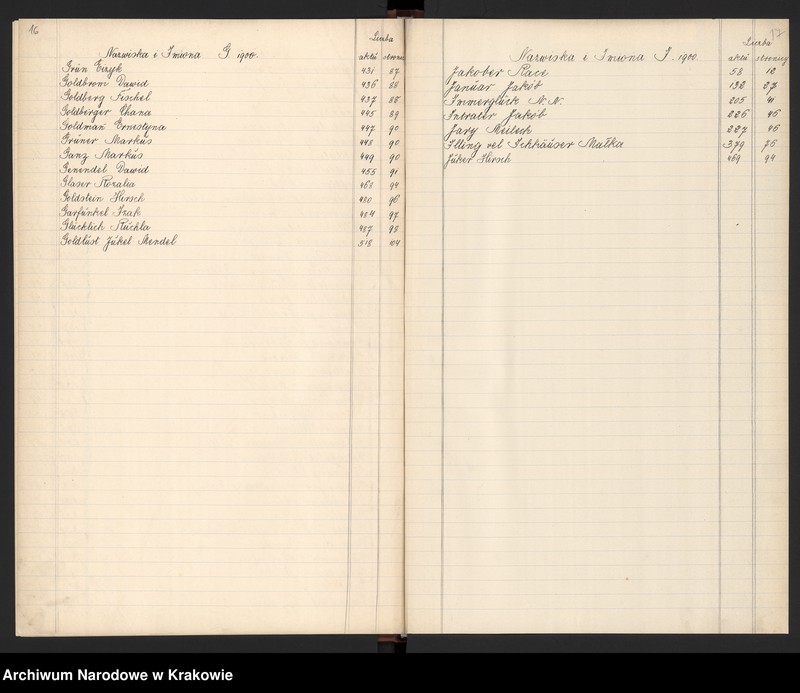 16
Liczba
Nazwiska i Imiona G. 1900.
aktu strony
Grün Eizyk 431 87
Goldbrom Dawid 436 88
Goldberg Fischel 437 88
Goldberger Chana 445 89
Goldman Ernestyna 447 90
Grüner Markus 448 90
Ganz Markus 449 90
Genendel Dawid 455 91
Glaser Rozalia 468 94
Goldstein Hirsch 480 96
Garfunkel Izak 484 97
Glücklich Ruchla 487 98
Goldlust Jukel Mendel 518 104
17
Liczba
Nazwiska i Imiona I. 1900.
aktu strony
Jakober 58 12
Januar Jakób 132 27
Immerglück N. N. 205 41
Intrater Jakób 226 45
Jary Meilech 227 46
Illing vel Ickhäuser Małka 379 76
Juker Hirsch 469 94
Archiwum Narodowe w Krakowie